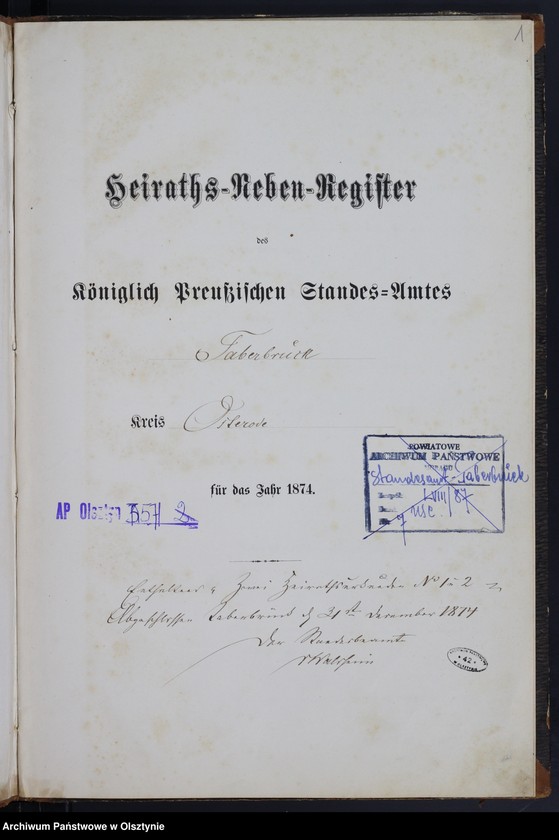 1
Heiraths-Neben-Register
des
Königlich Preußischen Standes-Amtes
Taberbrück
Kreis Osterode
für das Jahr 1874.
POWIATOWE
ARCHIWUM PAŃSTWOWE
Standesamt-Taberbrück
VIII/87
9 USC
AP Olsztyn
Enthaltend Zwei Heirathsurkunden No 1 u 2
Abgeschlossen Taberbrück d 31ten December 1874
Der Standesbeamte
42
Archiwum Państwowe w Olsztynie